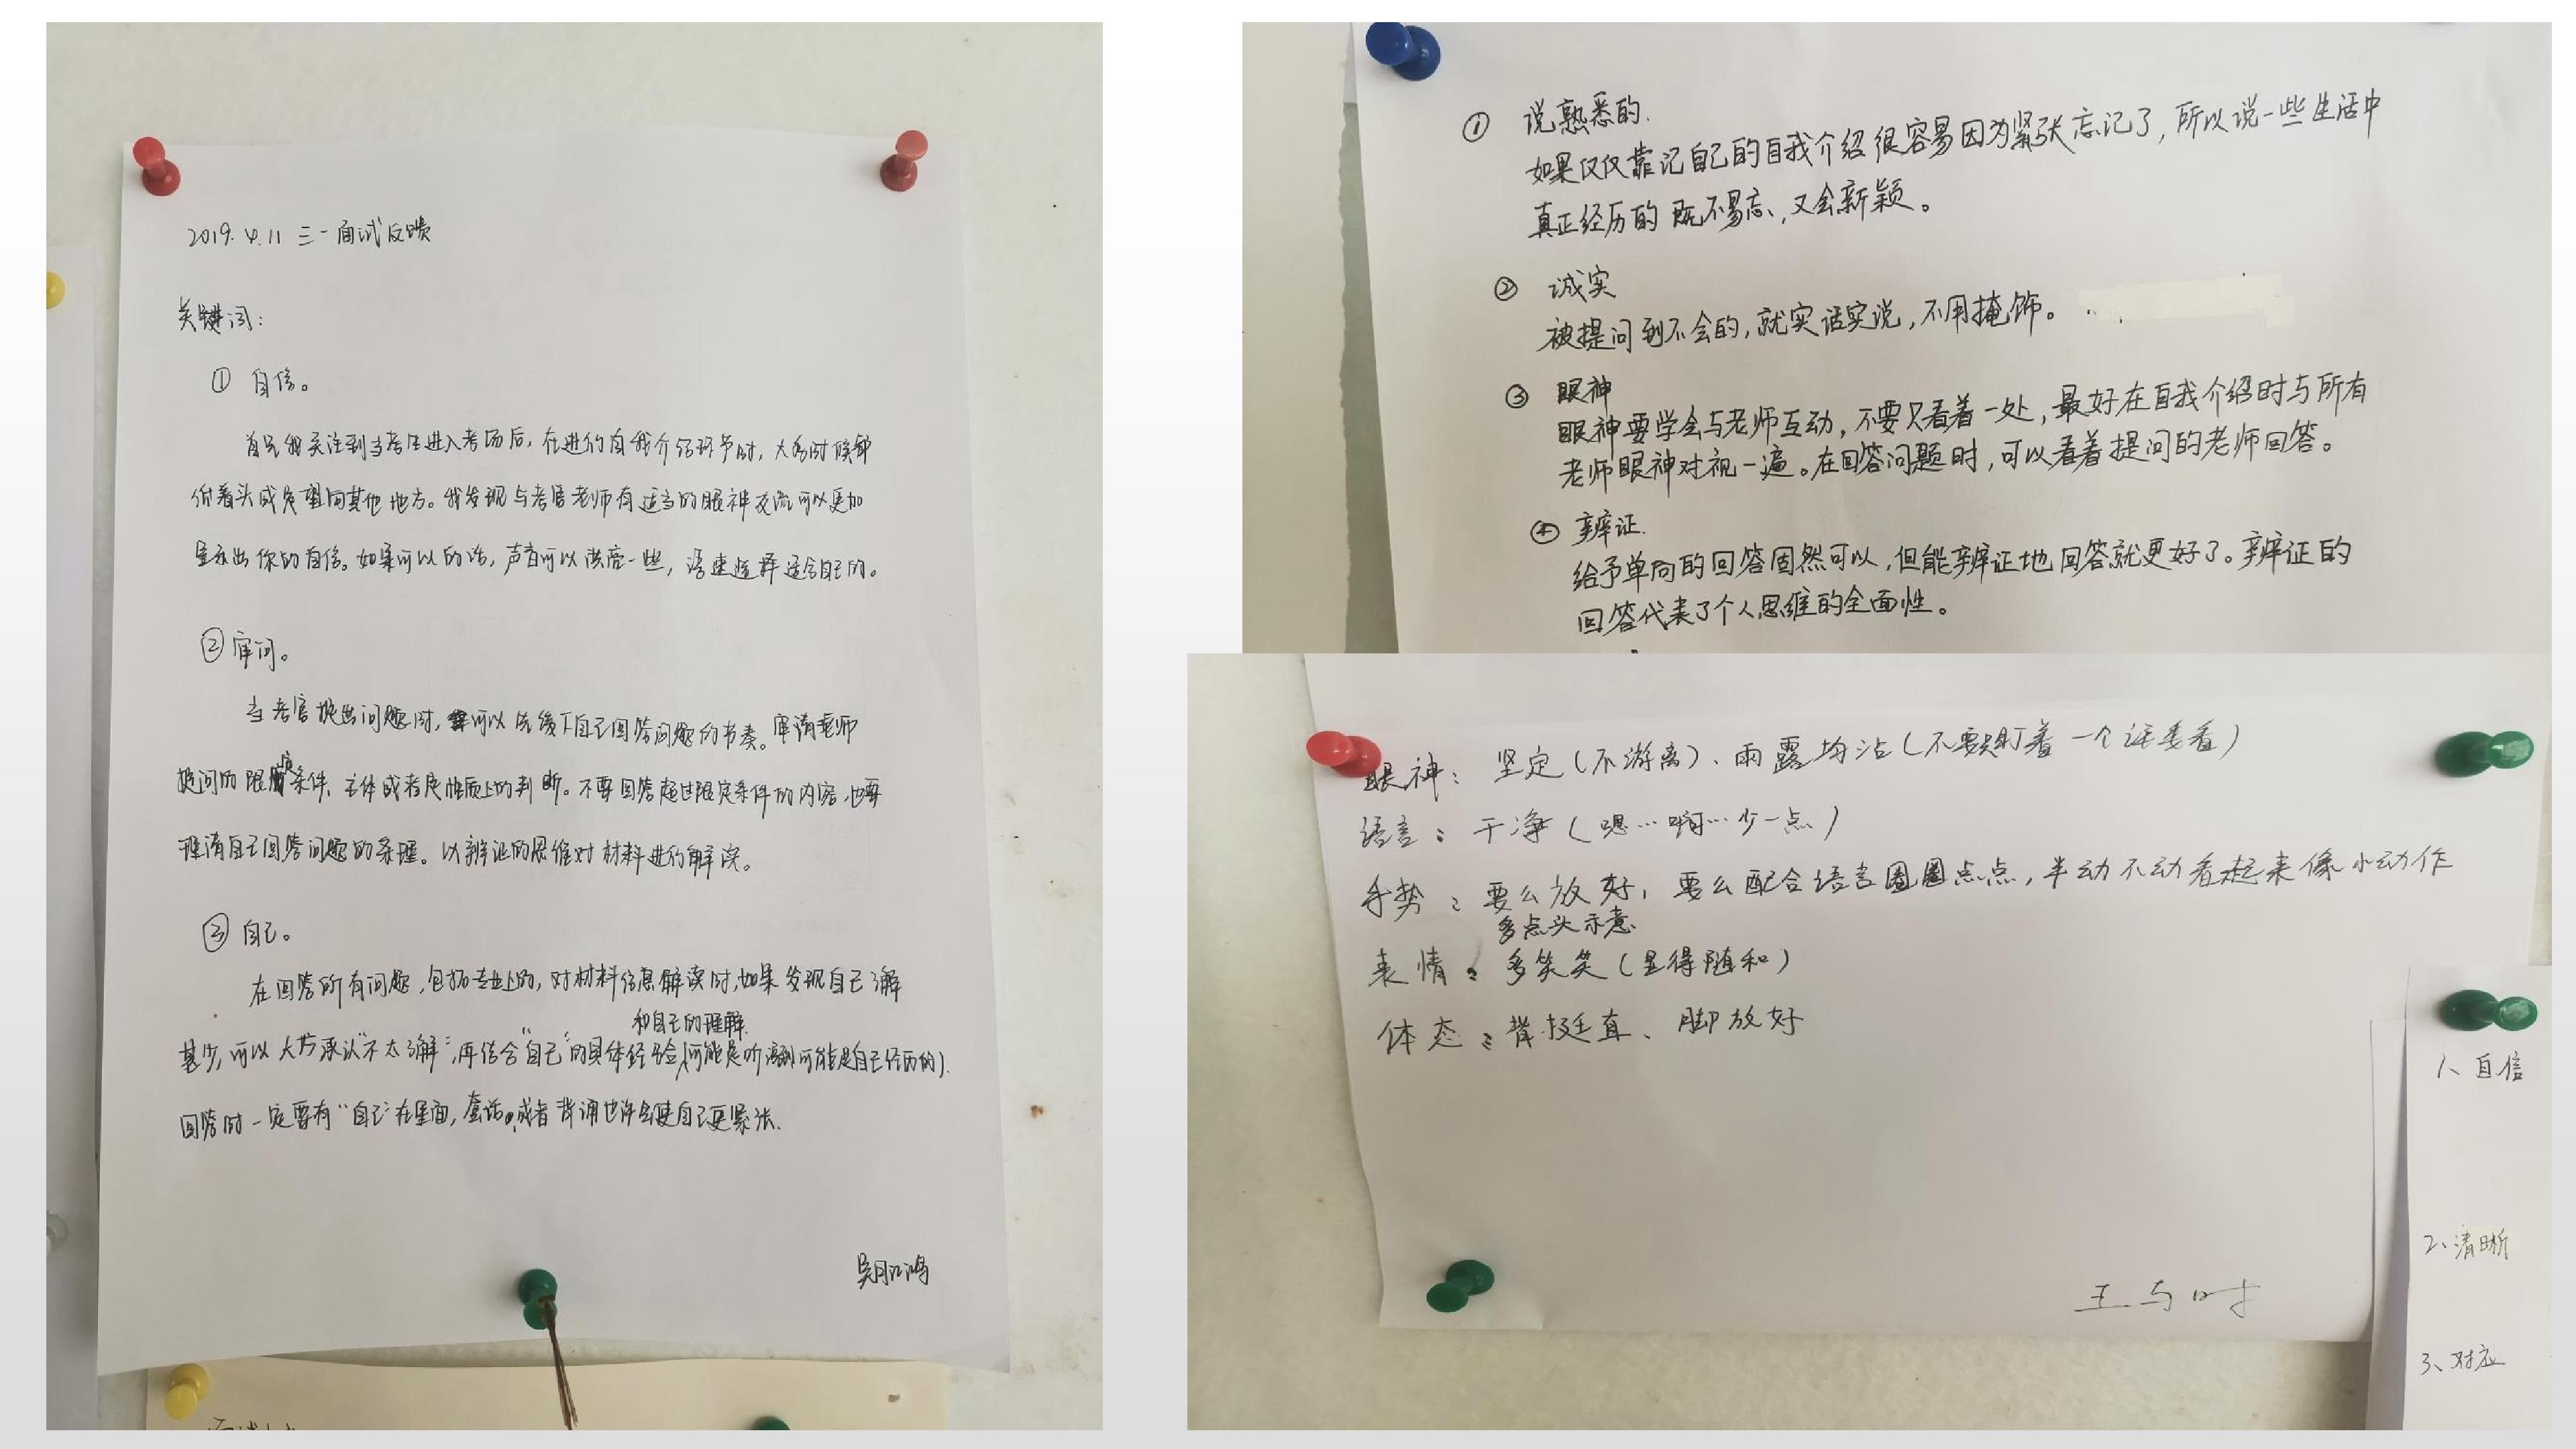 2019.4.11 三一面试反馈
关键词：
① 自信。
首先我关注到当考生进入考场后，在进行自我介绍环节时，大多时候都
俯着头或是望向其他地方。我发现与考官老师有适当的眼神交流可以更加
显示出你的自信。如果可以的话，声音可以洪亮一些，语速选择适合自己的。
② 审问。
当考官提出问题时，可以先缓下自己回答问题的节奏。审清老师
提问的限定条件、主体或者是性质上的判断。不要回答超过限定条件的内容，也要
理清自己回答问题的条理。以辨证的思维对材料进行解读。
③ 自己。
在回答所有问题，包括专业上的，对材料信息解读时，如果发现自己了解
甚少，可以大方承认“不太了解”，再结合“自己”的具体经验和自己的理解（可能是听过可能是自己经历的）.
回答时一定要有“自己”在里面，套话，或者背诵也许会使自己更紧张.
① 说熟悉的.
如果仅仅靠记自己的自我介绍很容易因为紧张忘记了，所以说一些生活中
真正经历的 既不易忘，又会新颖。
② 诚实
被提问到不会的，就实话实说，不用掩饰。
③ 眼神
眼神要学会与老师互动，不要只看着一处，最好在自我介绍时与所有
老师眼神对视一遍。在回答问题时，可以看着提问的老师回答。
④ 辨证.
给予单向的回答固然可以，但能辨证地回答就更好了。辨证的
回答代表了个人思维的全面性。
眼神：坚定（不游离）、雨露均沾（不要只盯着一个评委看）
语言：干净（嗯…啊…少一点）
手势：要么放好，要么配合语言圈圈点点，半动不动看起来像小动作
多点头示意
表情：多笑笑（显得随和）
体态：背挺直、脚放好
王与时
1、自信
2、清晰
3、对应